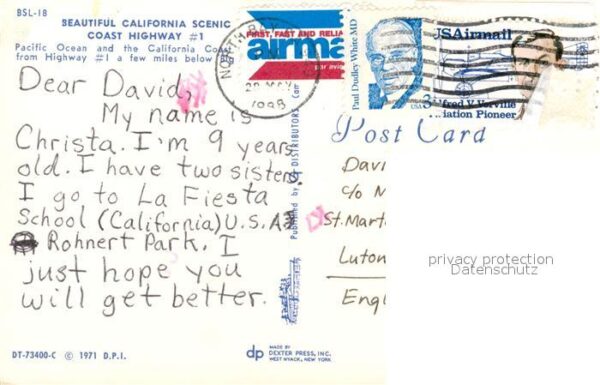 BSL-18
BEAUTIFUL CALIFORNIA SCENIC
COAST HIGHWAY #1
Pacific Ocean and the California Coast
from Highway #1 a few miles below
Dear David,
My name is
Christa. I'm 9 years
old. I have two sisters.
I go to La Fiesta
School (California) U.S.A
Rohnert Park. I
just hope you
will get better.
DT-73400-C © 1971 D.P.I.
Published by
DISTRIBUTORS
dp
MADE BY
DEXTER PRESS, INC.
WEST NYACK, NEW YORK
FIRST, FAST AND RELIA
airma
par avio
NORTH B
1998
Paul Dudley White MD
USA 3
USAirmail
lfred V. Verville
viation Pioneer
Post Card
Davi
c/o N
St. Mart
Luton
Eng
privacy protection
Datenschutz